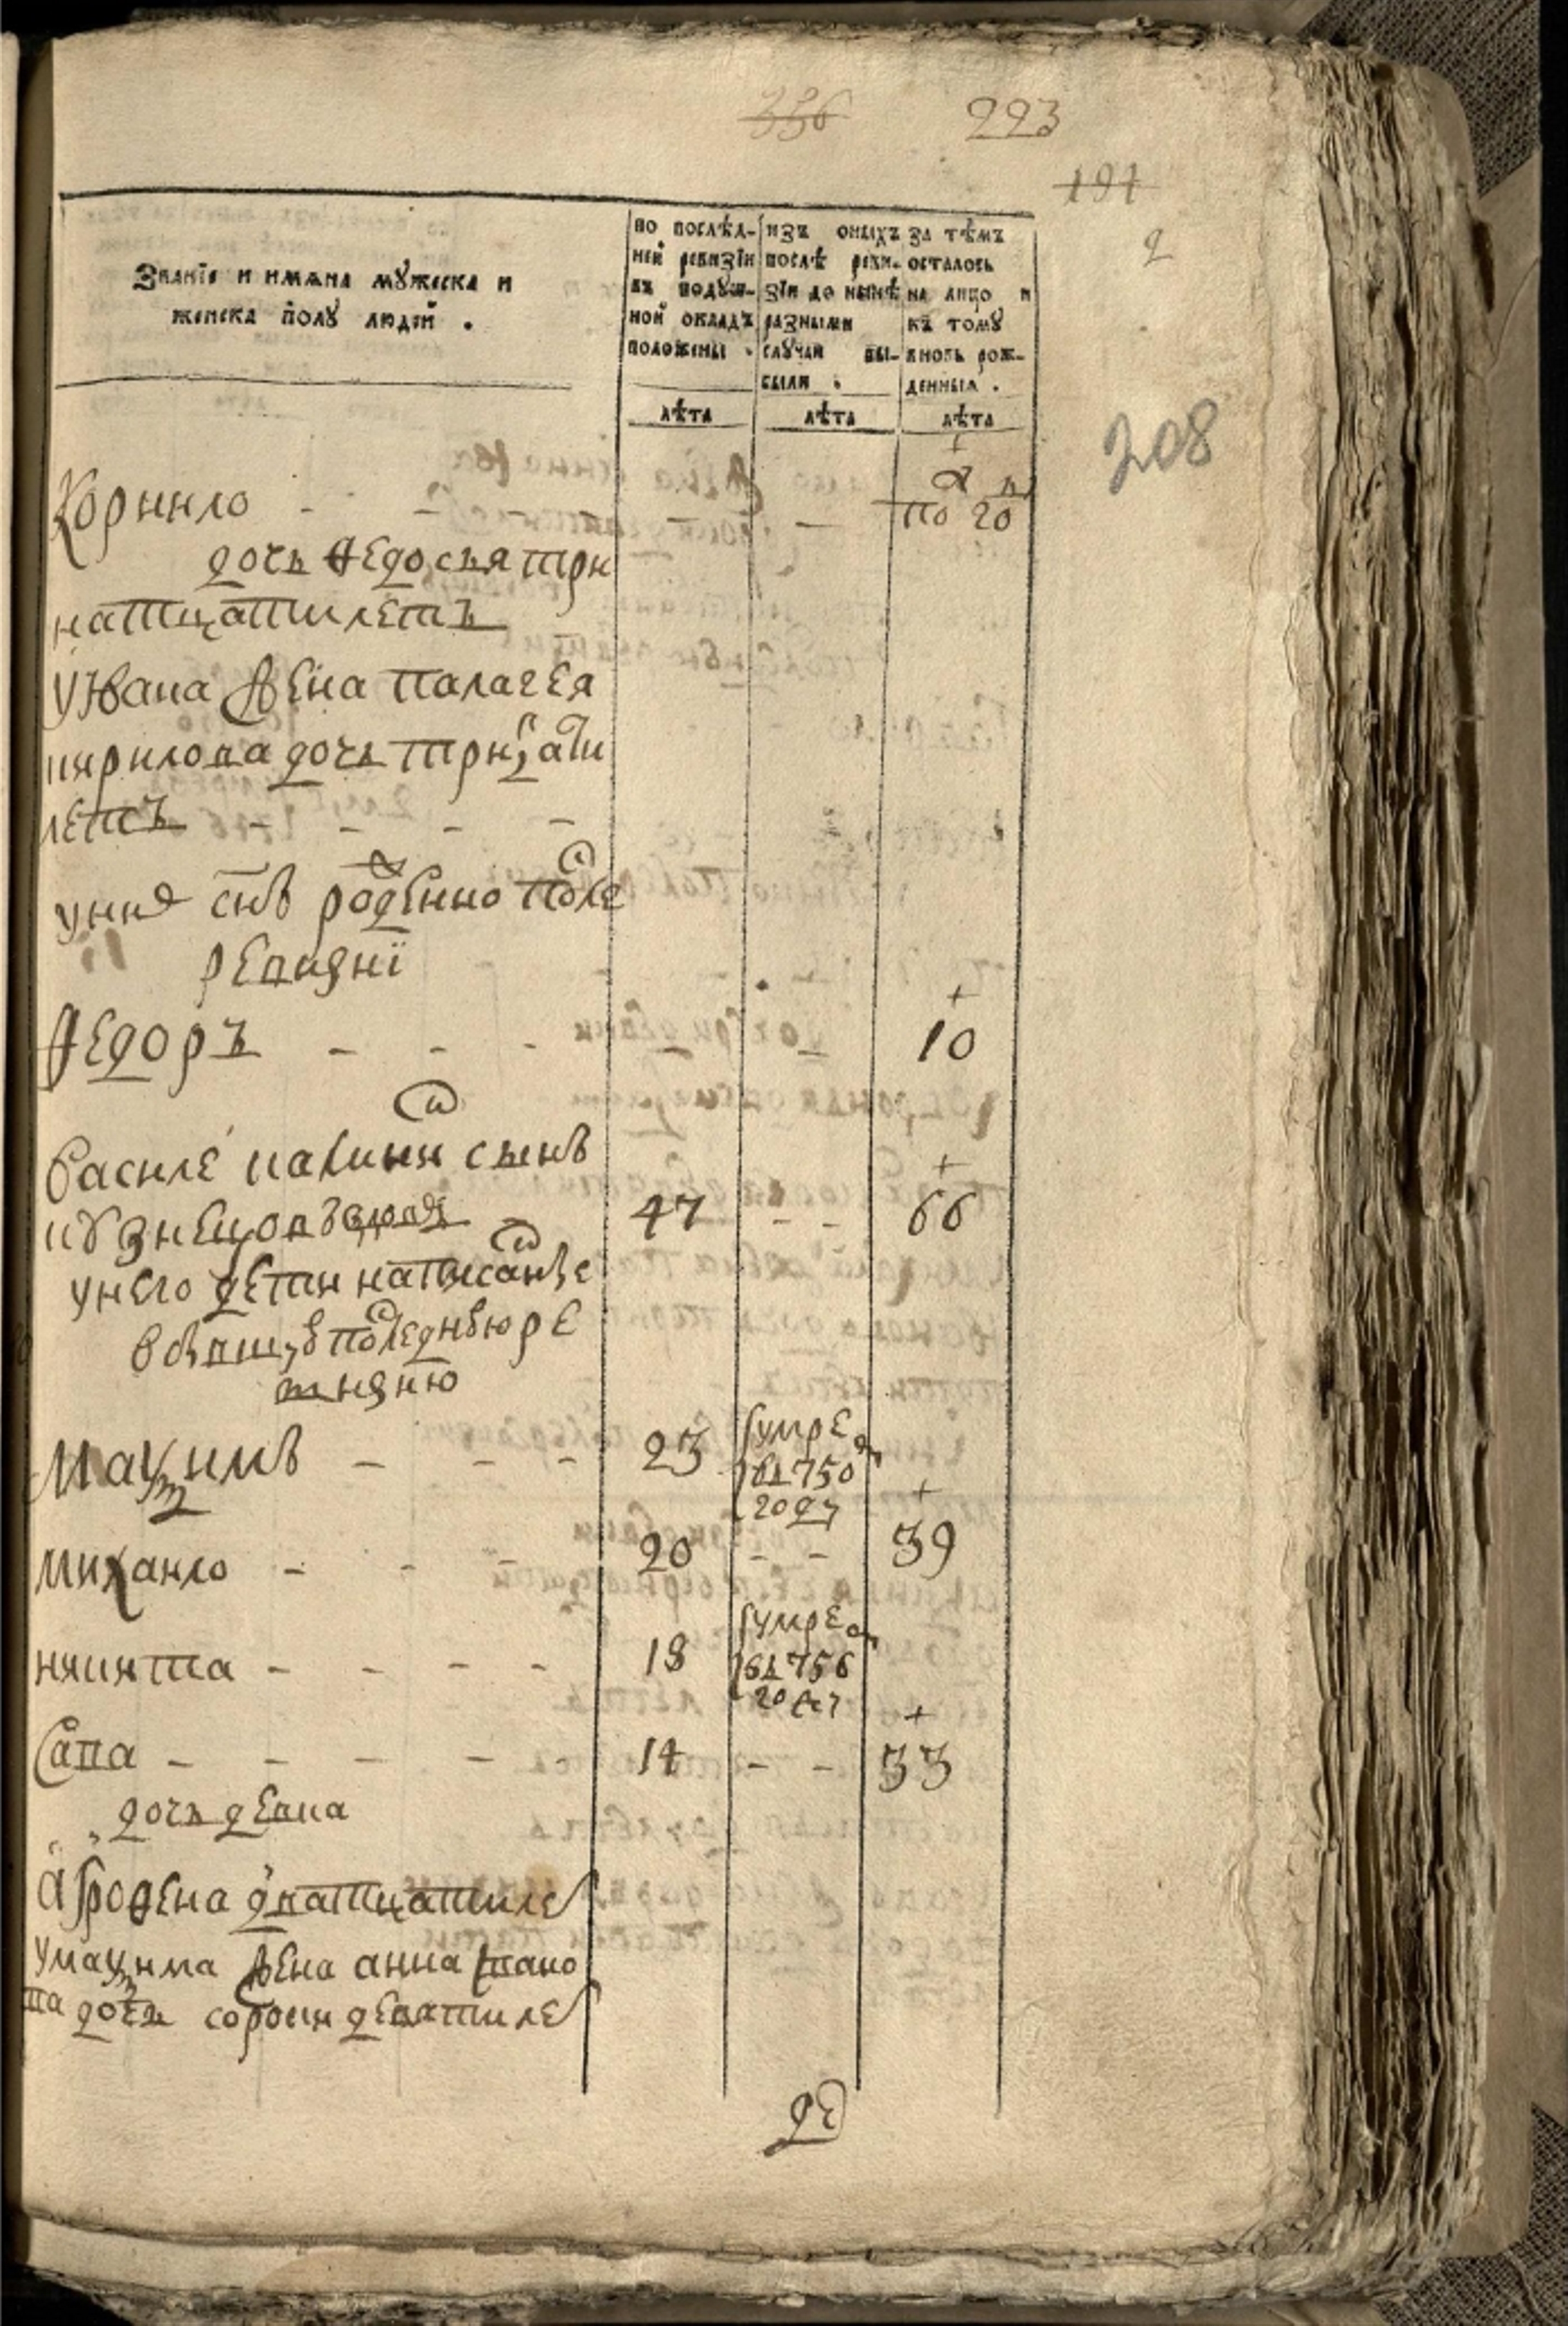 336 223
191
2
208
Званїе и имѧна мꙋжеска и
женска полꙋ людей .
по послѣд-
ней ревизїи
въ подꙋш-
ной окладъ
положены .
изъ оныхъ
послѣ реви-
зїи до нынѣ
разными
слꙋчаи вы-
были .
за тѣмъ
осталось
на лицо и
къ томꙋ
вновь рож-
денныхъ .
лѣта лѣта лѣта
Корнило - - - по 20
дочь Ѳедосья три
натцати летъ
у Ивана жена палагея
кирилова дочь трицати
летъ - - - -
у них снъ рожденно после
ревизиї
Ѳедоръ - - - - - 10
Василе сынъ
кузнецовъ 47 - - 66
у него дети написанъе
в бывшую последнюю ре
визию
Маѯимъ - - - 23 умре
въ 750
году
михаило - - - 20 - - 39
никита - - - - 18 умре
въ 756
году
Сава - - - - 14 - - 33
дочь девка
Агроѳена дватцати ле
у маѯима жена анна
ва дочь сорокъ девяти ле